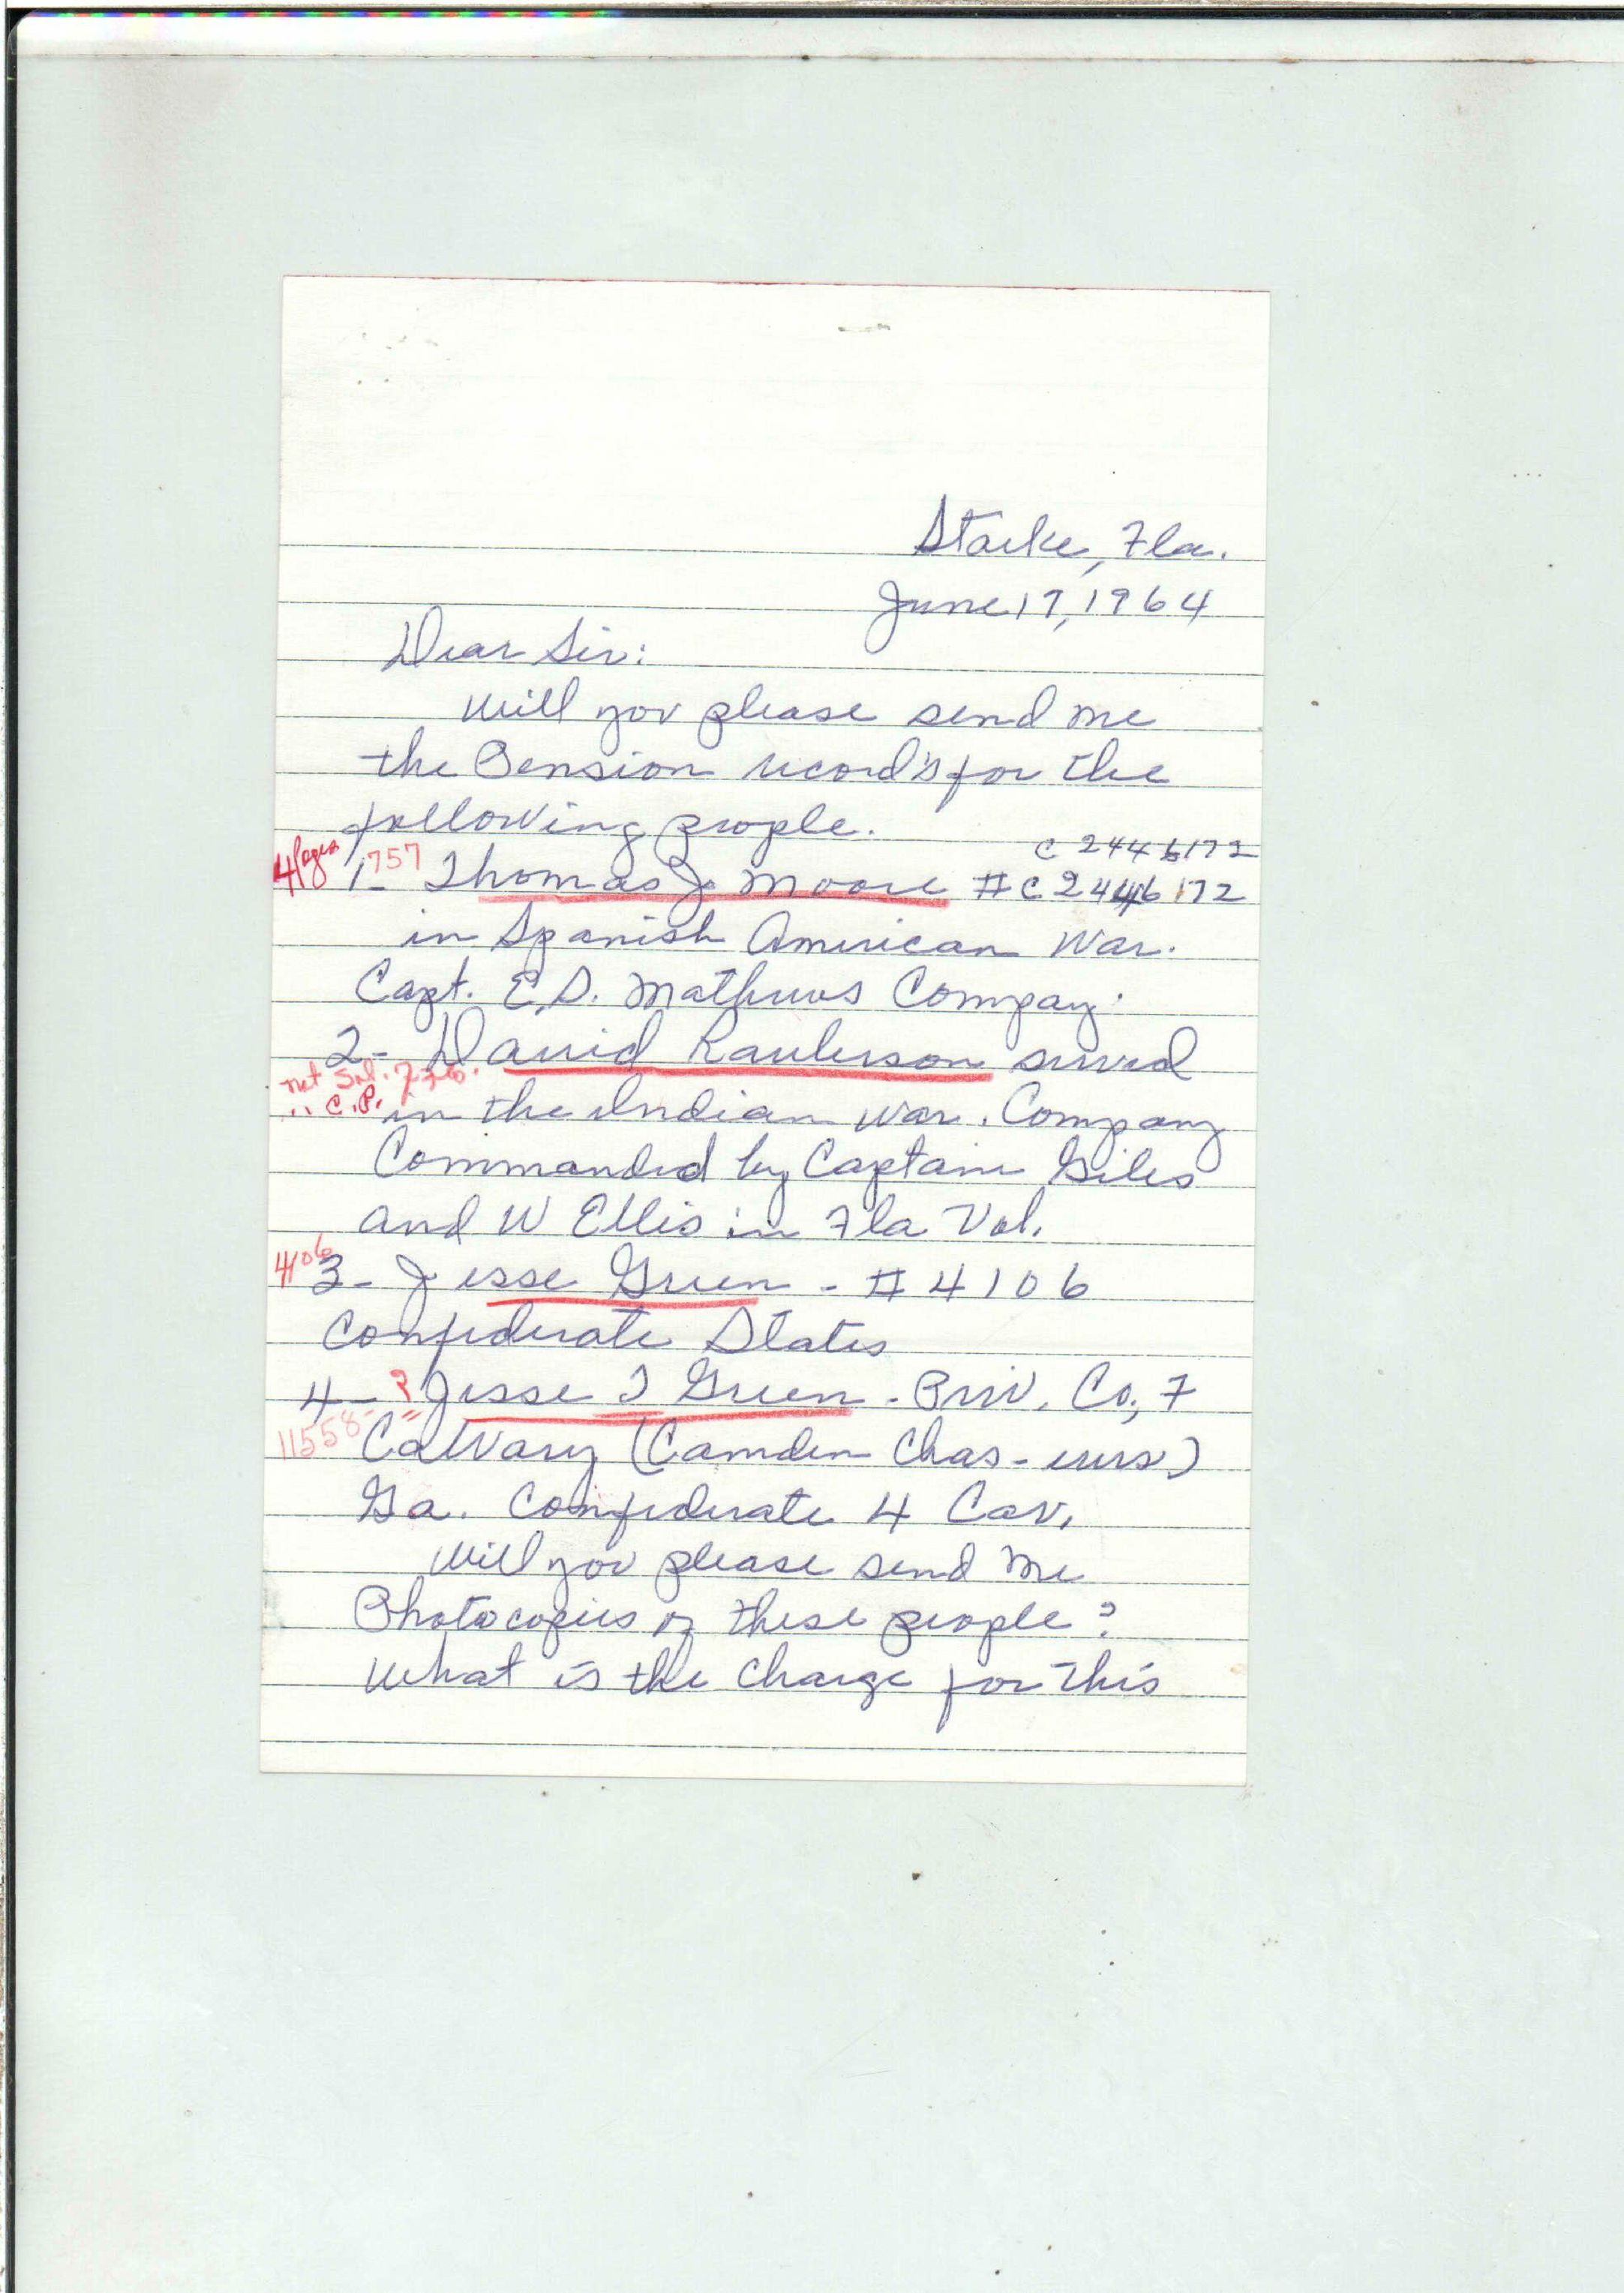 Starke, Fla.
June 17, 1964
Dear Sir:
Will you please send me
the Pension record's for the
following people.
C 2446172
4 pages 1- 757 Thomas J. Moore # C 2446172
in Spanish American War.
Capt. E.D. Mathews Compay:
2- David Raulerson served
not Sol.
" C.P. in the Indian War. Company
Commanded by Captain Giles
and W Ellis in Fla Vol.
4106 3- Jesse Green - # 4106
Confederate States
4- ? Jesse J Green - Priv. Co, F
11558- Calvary (Camden Chas-eurs)
Ga. Confederate 4 Cav.
Will you please send me
Photocopies of these people?
What is the Charge for this